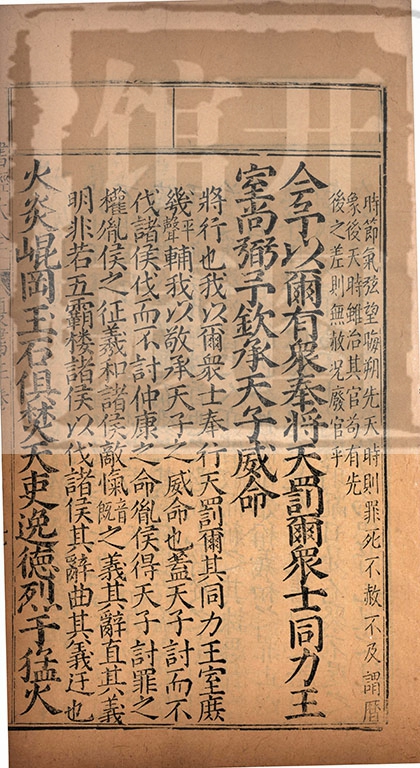 時節氣弦望晦朔先天時則罪死不赦不及謂曆
象後天時雖治其官苟有先
後之差則無赦况廢官乎
今予以爾有衆奉將天罰爾衆士同力王
室尚弼予欽承天子威命
將行也我以爾衆士奉行天罰爾其同力王室庶
幾平聲輔我以敬承天子之威命也蓋天子討而不
伐諸侯伐而不討仲康之命胤侯得天子討罪之
權胤侯之征羲和諸侯敵愾音既之義其辭直其義
明非若五霸摟諸侯以伐諸侯其辭曲其義迂也
火炎崐岡玉石俱焚天吏逸德烈于猛火